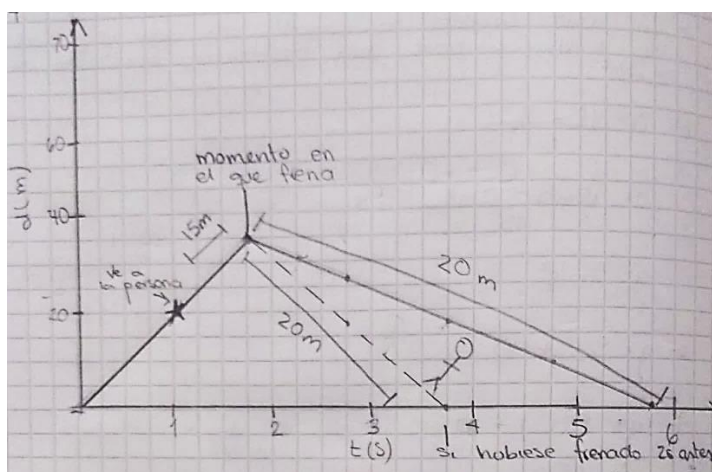 70
60
40
20
d(m)
momento en
el que frena
15m
ve a
la persona
20m
20m
1 2 3 4 5 6
t(s)
si hobiese frenado 2s antes